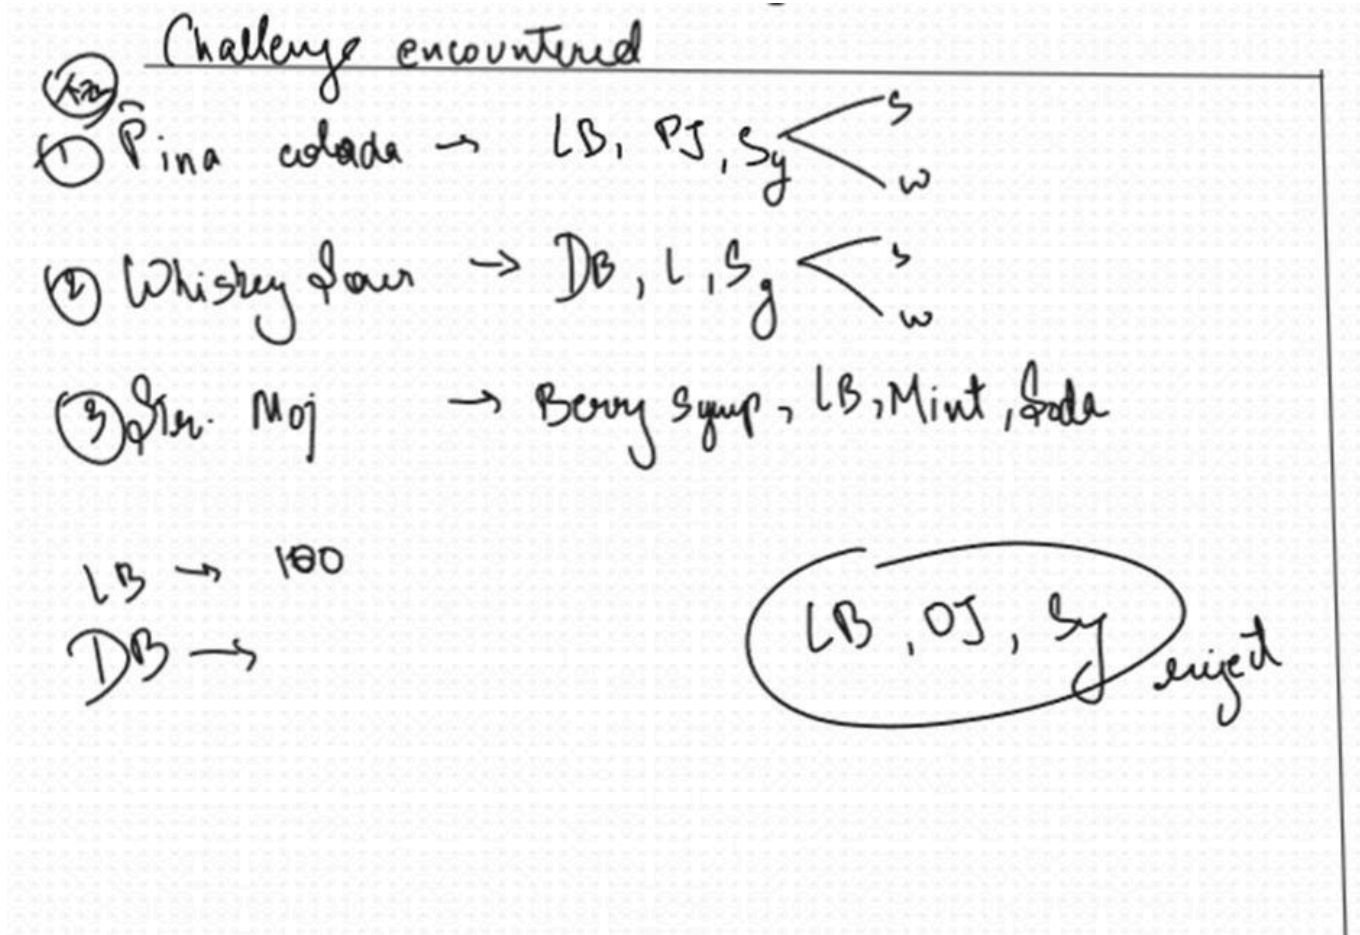 Challenge encountered
① Pina colada → LB, PJ, Sy < S
W
② Whiskey Sour → DB, L, Sy < S
W
③ Str. Moj → Berry Syrup, LB, Mint, Soda
LB → 100
DB →
LB, OJ, Sy